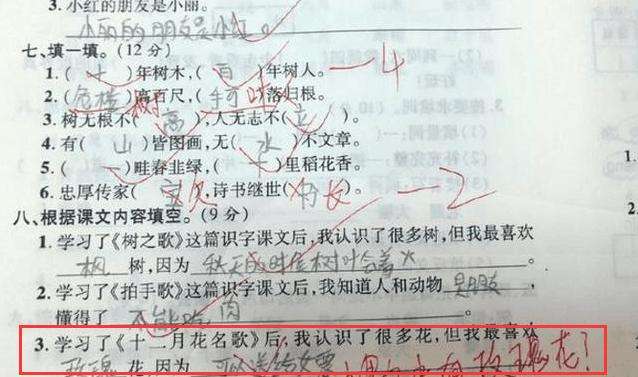 3. 小红的朋友是小丽。
小丽的朋友是小红。
七、填一填。(12 分)
1. ( 十 )年树木,( 百 )年树人。 —4
2. ( 危楼 )高百尺,( )落归根。
3. 树无根不( 高 ),人无志不( 立 )。
4. 有( 山 )皆图画,无( 水 )不文章。
5. ( 一 )畦春韭绿,( 十 )里稻花香。
6. 忠厚传家( 久 ),诗书继世( 长 )。 —2
八、根据课文内容填空。(9 分)
1. 学习了《树之歌》这篇识字课文后,我认识了很多树,但我最喜欢
枫 树,因为 秋天 时 树叶 。
2. 学习了《拍手歌》这篇识字课文后,我知道人和动物 是朋友 ,
懂得了 不能吃肉 。
3. 学习了《十二月花名歌》后,我认识了很多花,但我最喜欢
玫瑰 花,因为 可以送给女 花?
1.
2.
3.